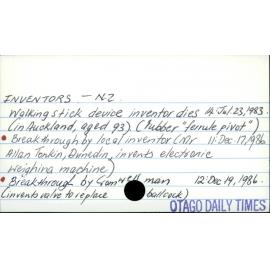 INVENTORS - N.Z.
Walking stick device inventor dies 4, Jul 23, 1983
(in Auckland, aged 93) (rubber "ferrule pivot")
• Breakthrough by local inventor (Mr 11 Dec 17, 1986
Allan Tonkin, Dunedin, invents electronic
weighing machine)
• Breakthrough by man 12 Dec 19, 1986.
(invents valve to replace ballcock)
OTAGO DAILY TIMES